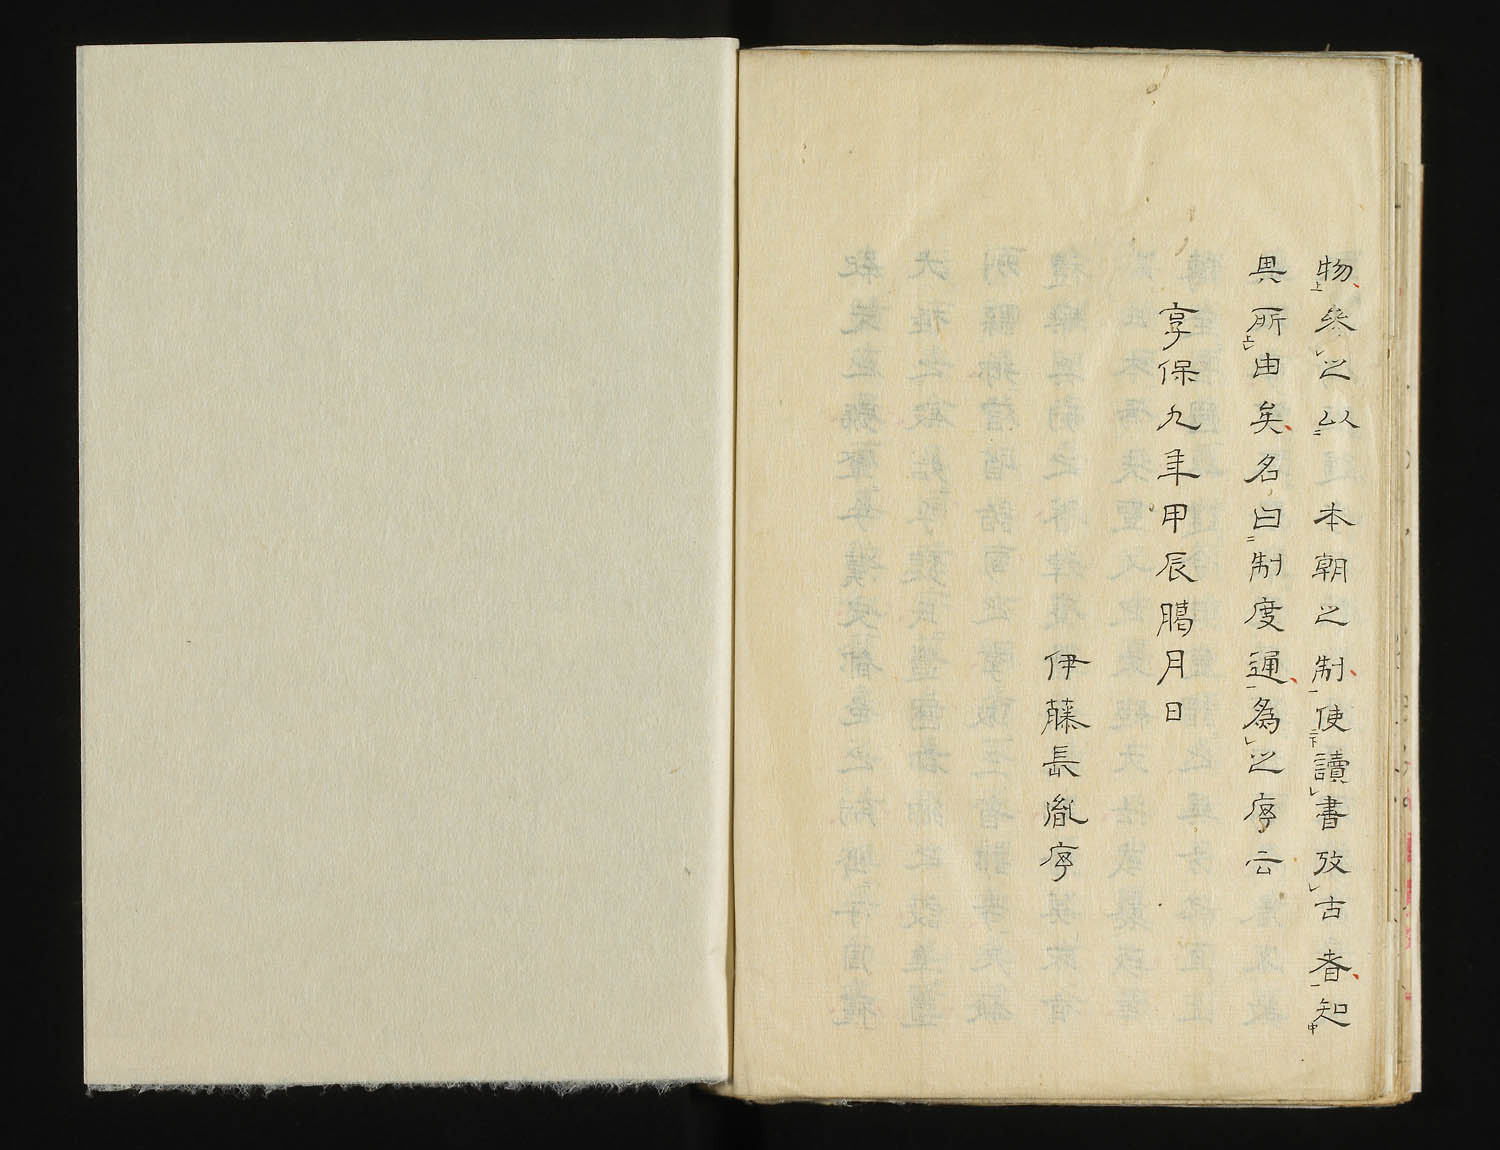 物參之以本朝之制使讀書攷古者知
其所由矣名曰制度通為之序云
享保九年甲辰臘月日
伊藤長胤序